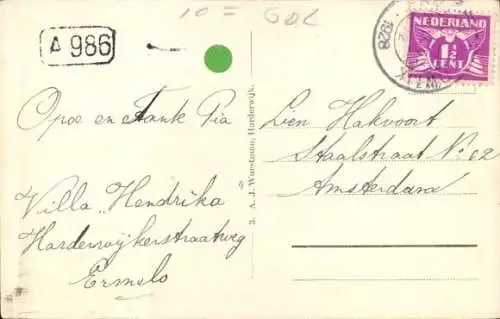 10 = GDL
A 986
1928
NEDERLAND
1½
CENT
Opoe en Tante Pia
Villa "Hendrika"
Harderwijkerstraatweg
Ermelo
3. A. J. Wuestman, Harderwijk.
Leen Hakvoort
Staalstraat No 62
Amsterdam